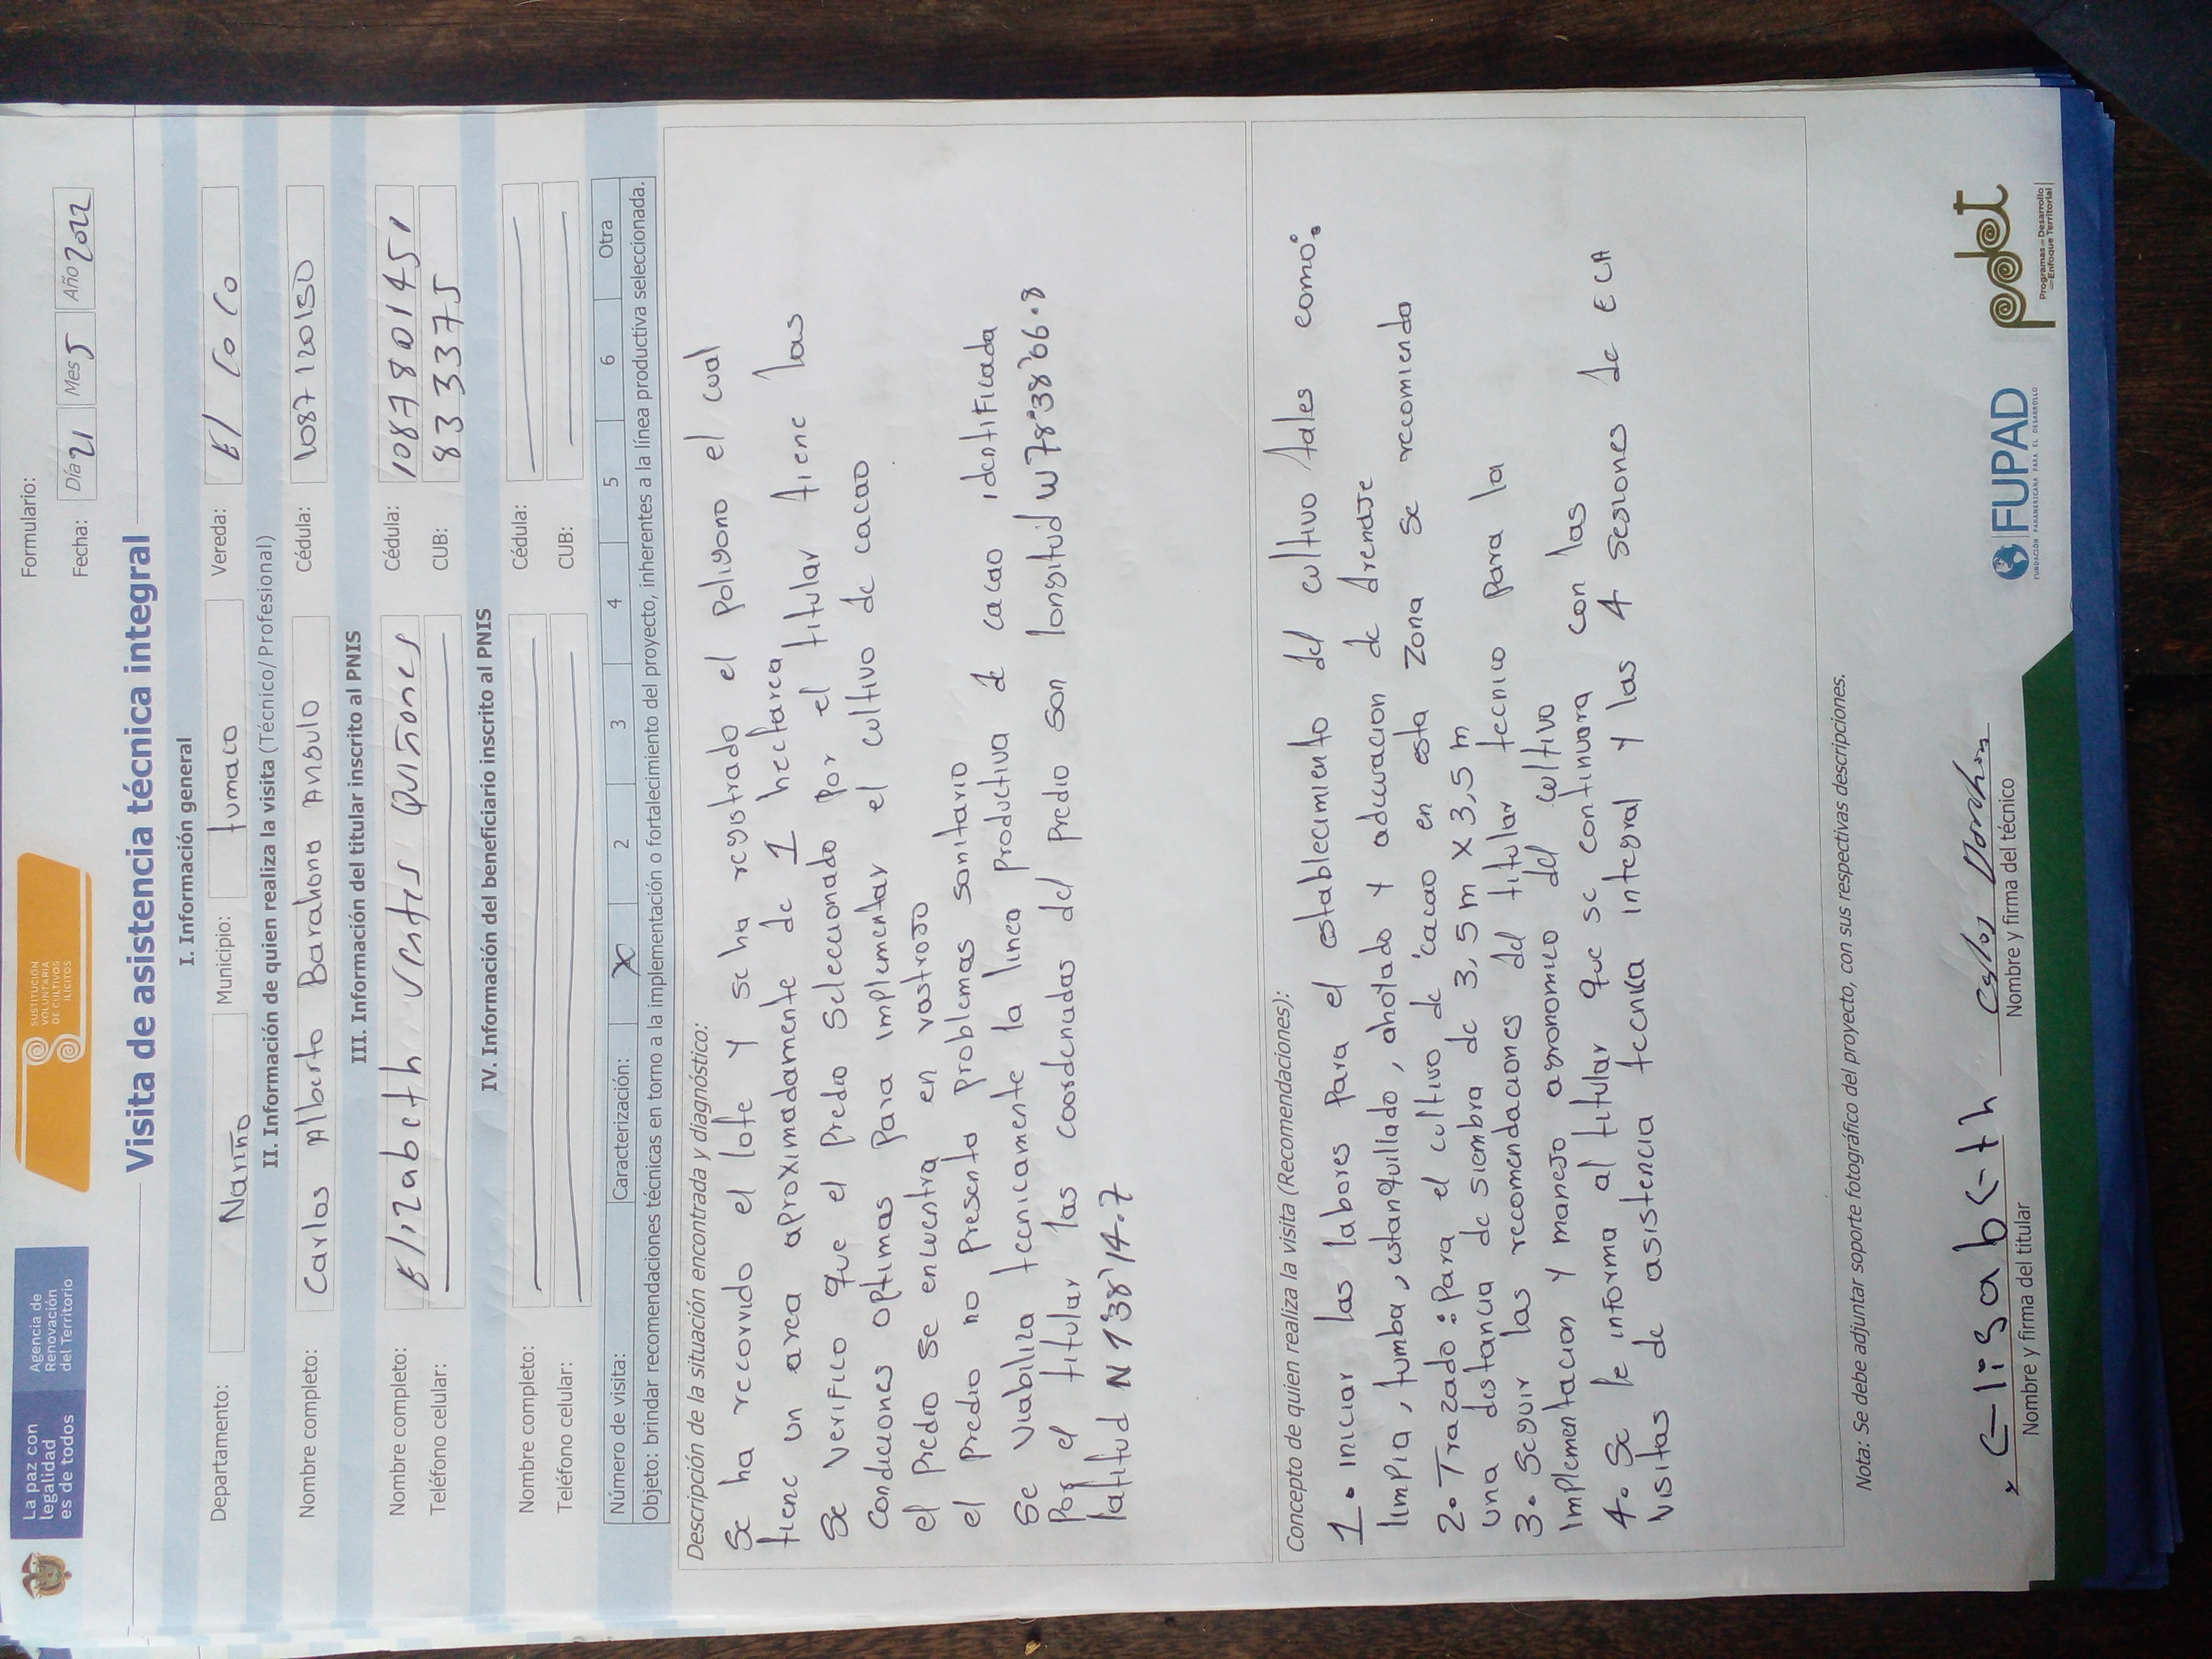 La paz con
legalidad
es de todos
Agencia de
Renovación
del Territorio
SUSTITUCIÓN
VOLUNTARIA
DE CULTIVOS
ILÍCITOS
Formulario:
Fecha: Día 21 Mes 5 Año 2022
Visita de asistencia técnica integral
I. Información general
Departamento: Nariño Municipio: tumaco Vereda: El CoCo
II. Información de quien realiza la visita (Técnico/Profesional)
Nombre completo: Carlos Alberto Barahona Angulo Cédula: 1087120150
III. Información del titular inscrito al PNIS
Nombre completo: Elizabeth Ventes Quiñones Cédula: 1087801451
Teléfono celular: CUB: 833375
IV. Información del beneficiario inscrito al PNIS
Nombre completo: Cédula:
Teléfono celular: CUB:
Número de visita: Caracterización: X 2 3 4 5 6 Otra
Objeto: brindar recomendaciones técnicas en torno a la implementación o fortalecimiento del proyecto, inherentes a la línea productiva seleccionada.
Descripción de la situación encontrada y diagnóstico:
Se ha recorrido el lote y se ha registrado el poligono el cual
tiene un area aproximadamente de 1 hectarea
Se verifico que el predio Seleccionado por el titular tiene las
condiciones optimas para implementar el cultivo de cacao
el predio se encuentra en rastrojo
el predio no presenta problemas sanitario
Se Viabiliza tecnicamente la linea productiva d cacao identificada
Por el titular las coordenadas del predio son longitud W78°38'66.8
latitud N 1°38'14.7
Concepto de quien realiza la visita (Recomendaciones):
1. iniciar las labores para el establecimiento del cultivo tales como:
limpia, tumba, estanquillado, ahotado y adecuacion de drenaje
2. Trazado: Para el cultivo de cacao en esta Zona se recomienda
una distancia de siembra de 3,5 m X 3,5 m
3. Seguir las recomendaciones del titular tecnico para la
implementacion y manejo agronomico del cultivo
4. Se le informa al titular que se continuara con las
Visitas de asistencia tecnica integral y las 4 sesiones de ECA
Nota: Se debe adjuntar soporte fotográfico del proyecto, con sus respectivas descripciones.
x Elisabeth
Nombre y firma del titular
Nombre y firma del técnico
FUPAD
FUNDACIÓN PANAMERICANA PARA EL DESARROLLO
pdet
Programas de Desarrollo
con Enfoque Territorial